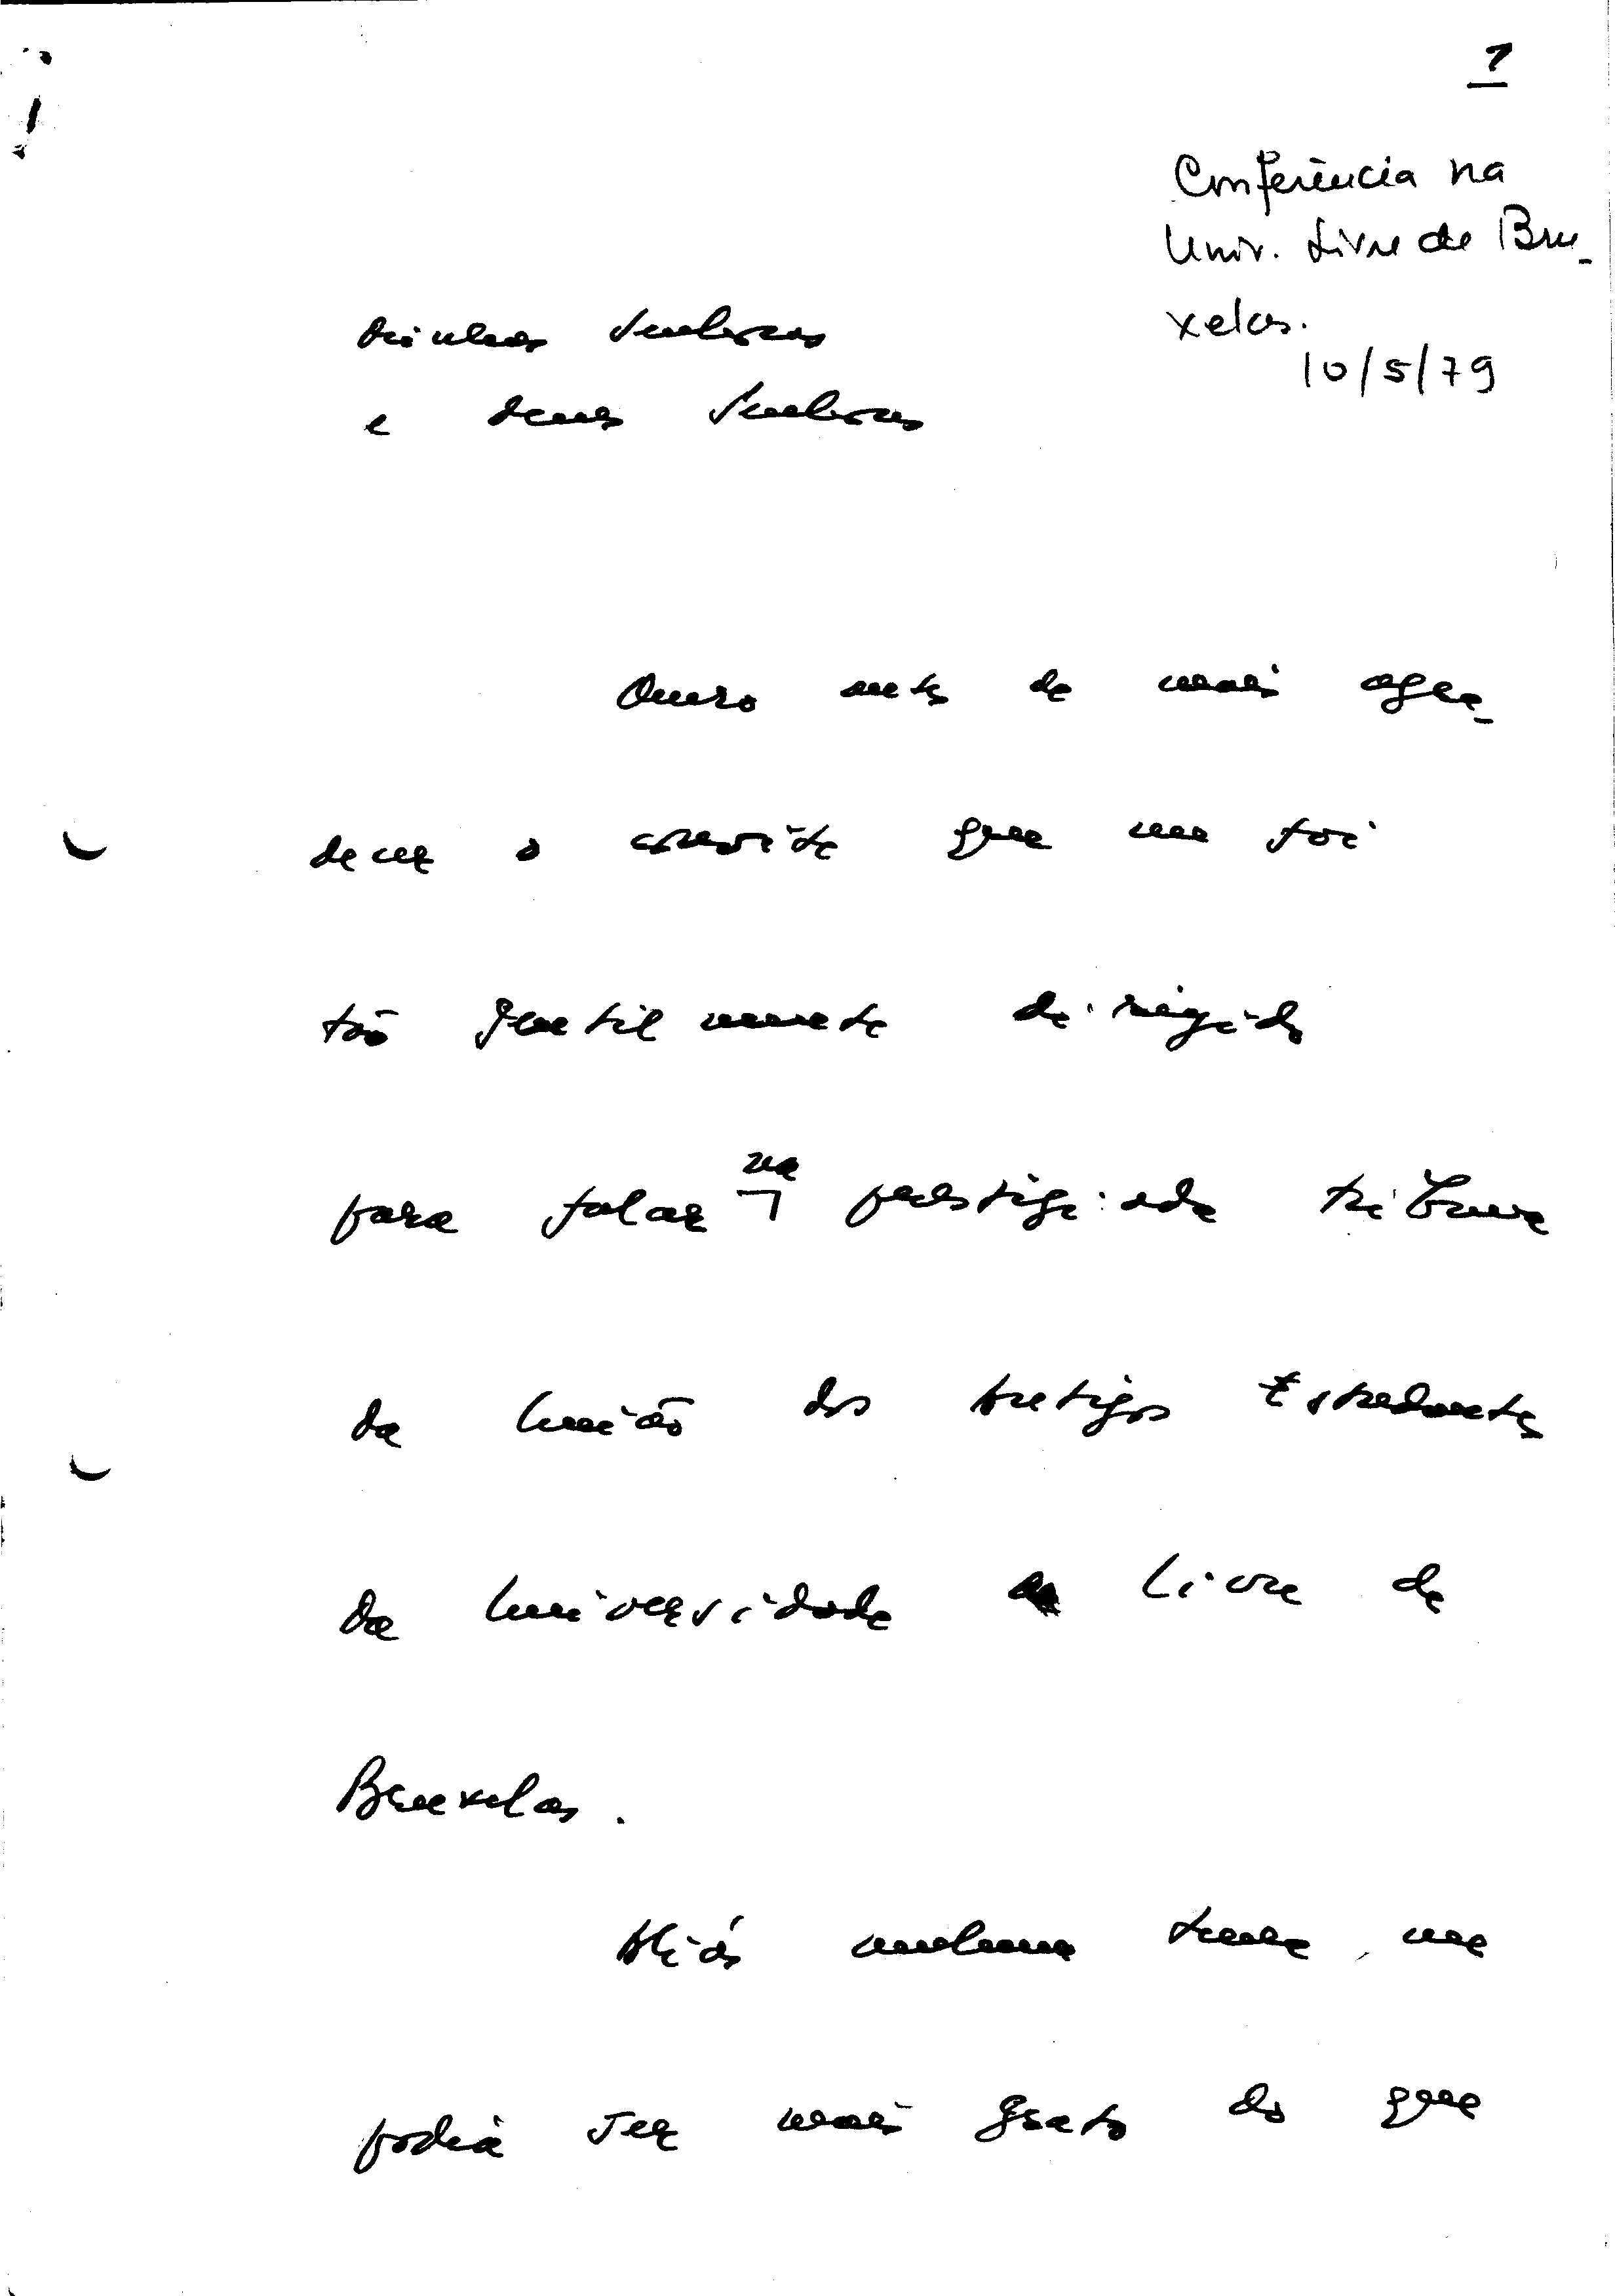 1
Conferência na
Univ. Livre de Bru-
xelas.
10/5/79
Minhas Senhoras
e Meus Senhores
Quero antes de mais agra-
decer o convite que me foi
tão gentilmente dirigido
para falar na prestigiada tribuna
da União dos Antigos Estudantes
da Universidade Livre de
Bruxelas.
Aliás nenhum tema me
podia ser mais grato do que